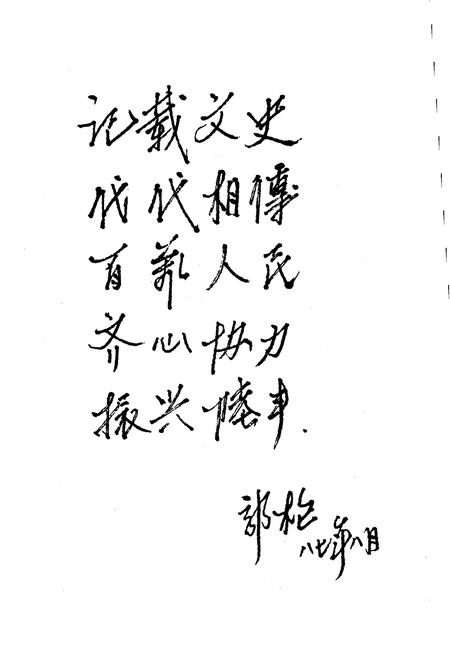 记载文史
代代相傳
百萬人民
齐心协力
振兴陸丰.
郭松
八七年八月